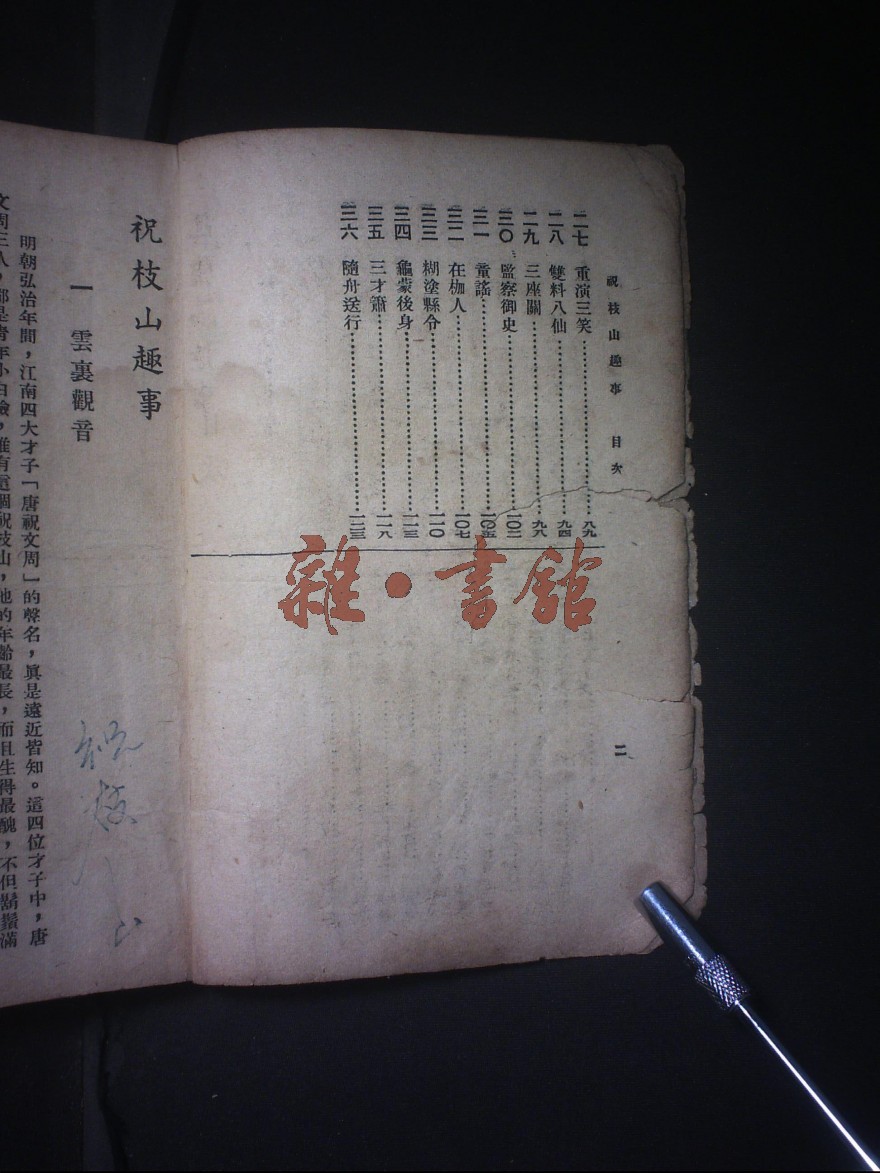 祝枝山趣事 目次
二七 重演三笑 八九
二八 雙料八仙 九四
二九 三座關 九八
三〇 監察御史 一〇二
三一 童謠 一〇五
三二 在枷人 一〇七
三三 糊塗縣令 一一〇
三四 龜蒙後身 一一三
三五 三才簫 一一八
三六 隨舟送行 一二三
二
雜·書館
祝枝山趣事
一 雲裏觀音
祝枝山
明朝弘治年間，江南四大才子「唐祝文周」的聲名，眞是遠近皆知。這四位才子中，唐
文周三人，都是青年小白臉，唯有這個祝枝山，他的年齡最長，而且生得最醜，不但鬍鬚滿